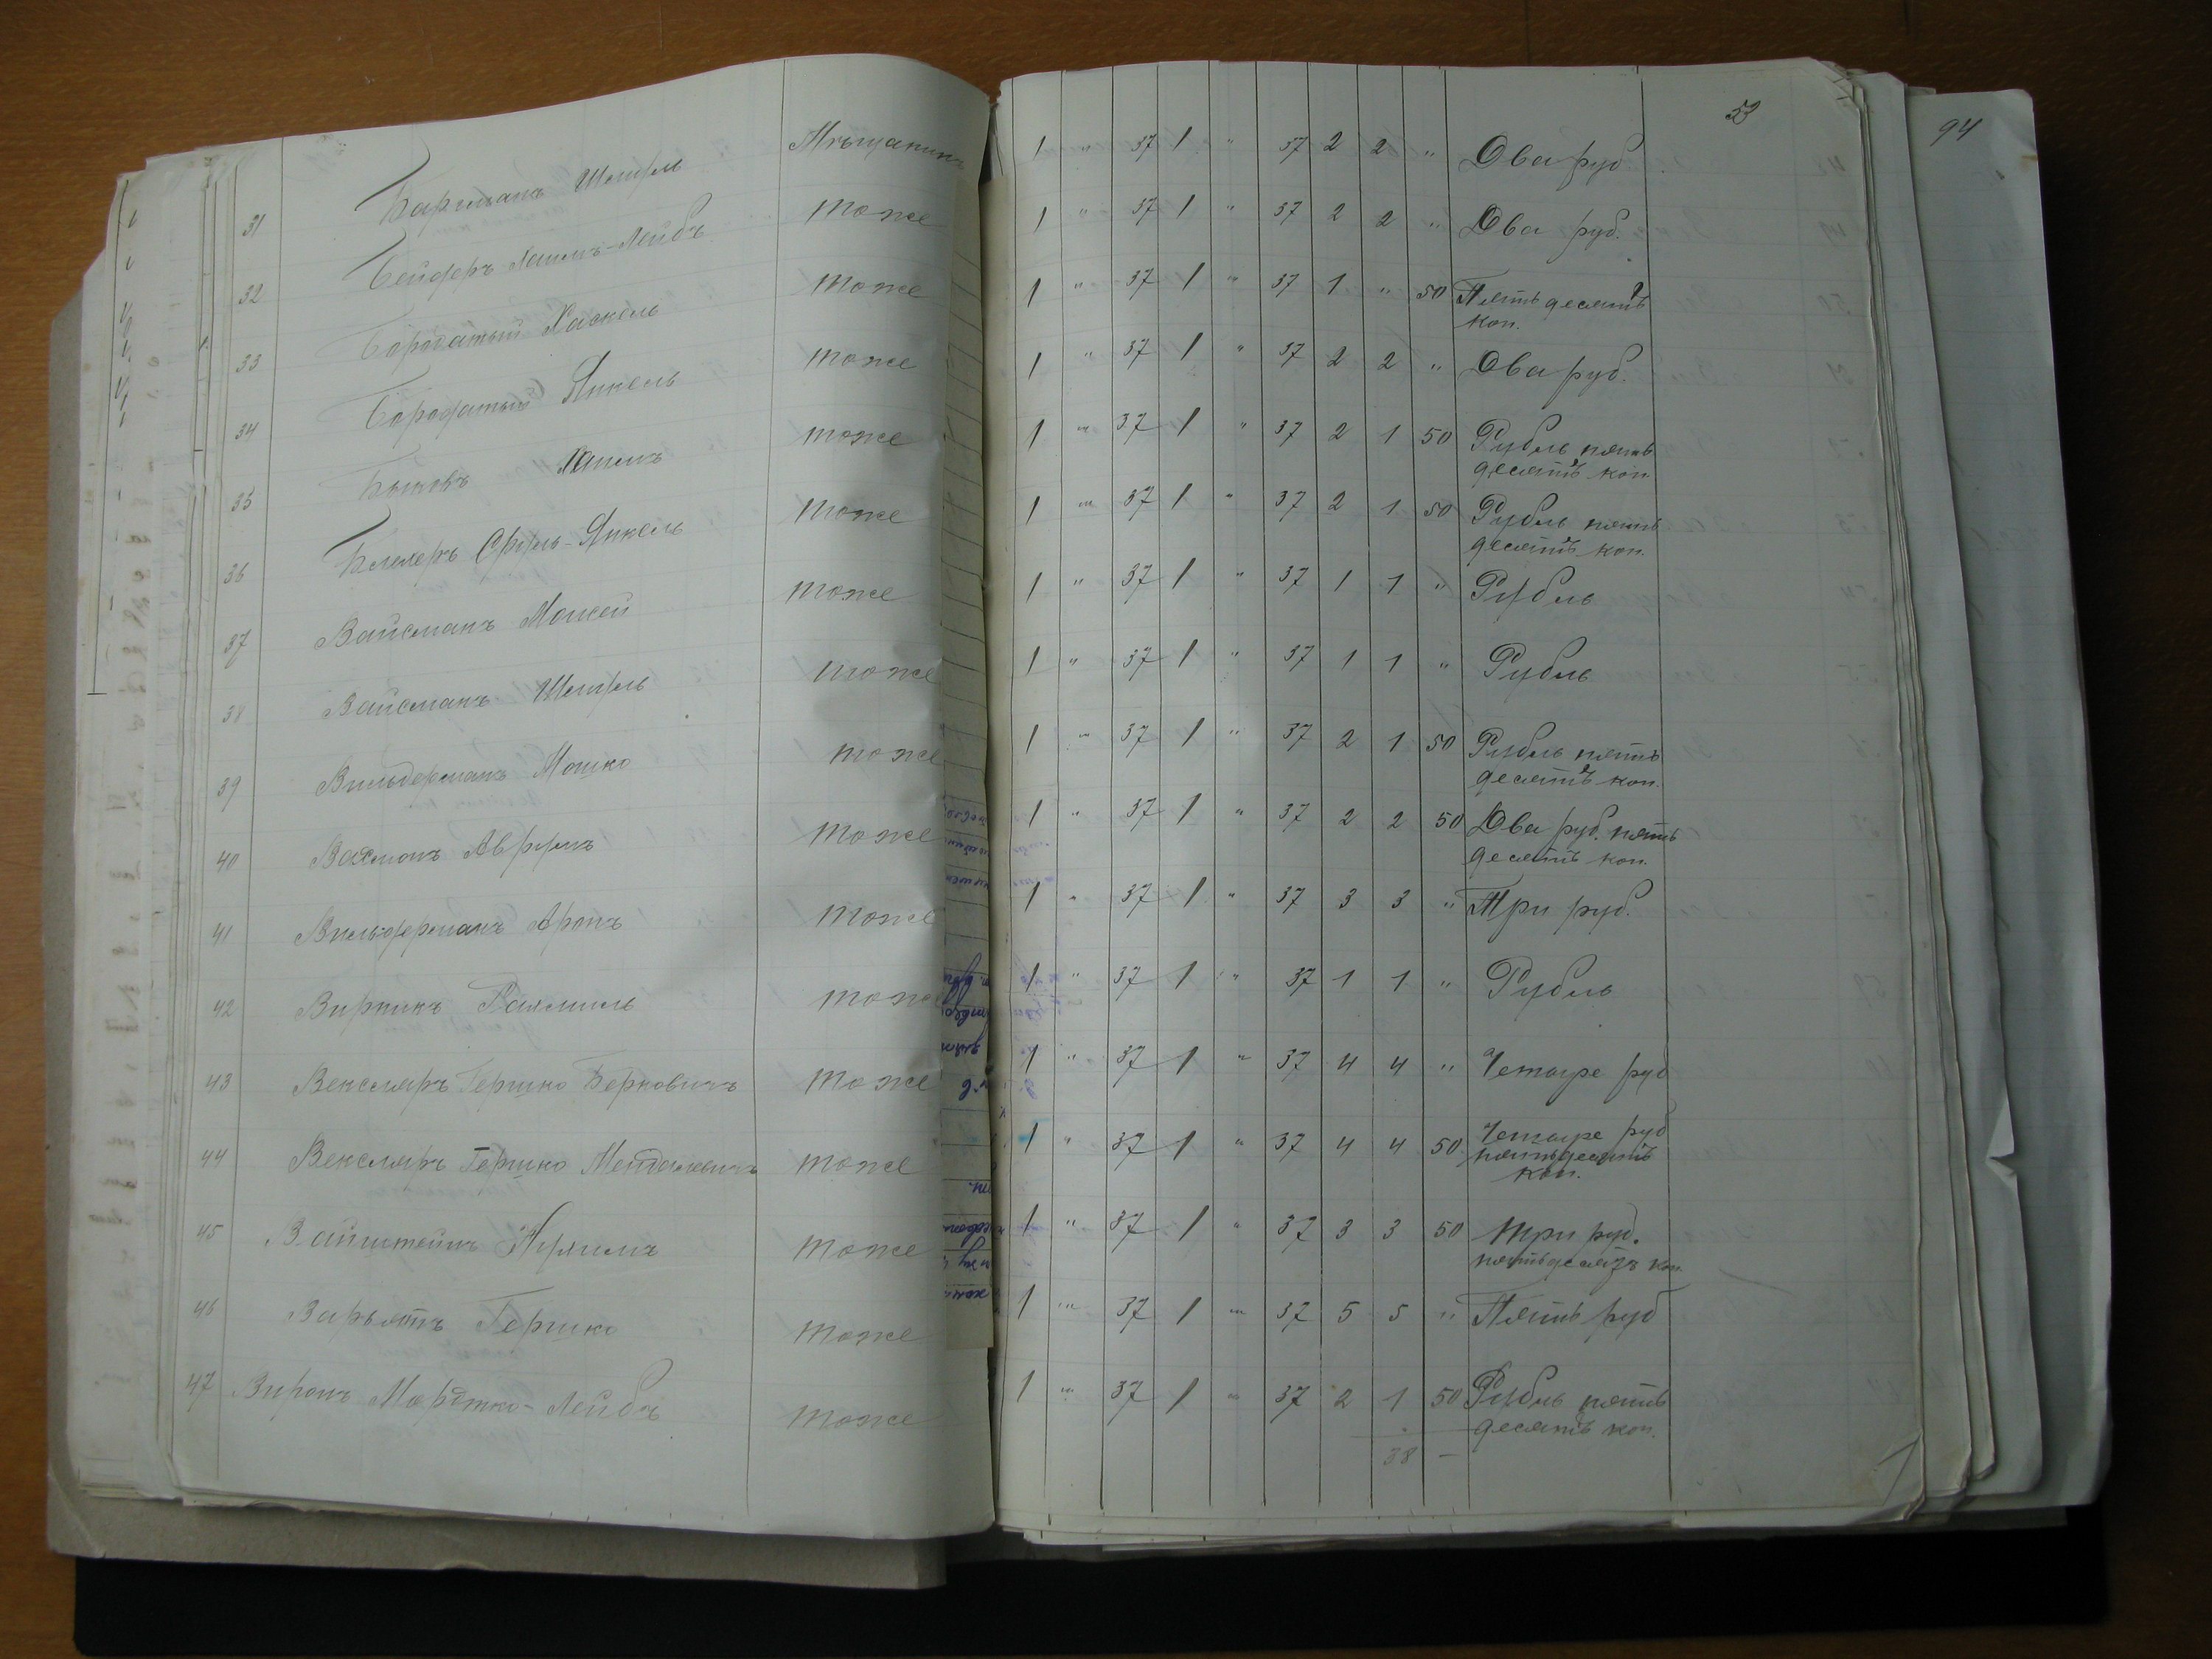 53
94
31 Барманъ Шмуль Мѣщанинъ 1 " 37 1 " 37 2 2 " Два руб
32 Бейдеръ Хаимъ-Лейбъ тоже 1 " 37 1 " 37 2 2 " Два руб.
33 Бородатый Хаскель тоже 1 " 37 1 " 37 1 " 50 Пятьдесятъ
коп.
34 Бородатый Янкель тоже 1 " 37 1 " 37 2 2 " Два руб.
35 Быковъ Хаимъ тоже 1 " 37 1 " 37 2 1 50 Рубль пять
десятъ коп.
36 Сруль-Янкель тоже 1 " 37 1 " 37 2 1 50 Рубль пять
десятъ коп.
37 Вайсманъ Мошей тоже 1 " 37 1 " 37 1 1 " Рубль
38 Вайсманъ Шмуль тоже 1 " 37 1 " 37 1 1 " Рубль
39 Вильдерманъ Мошко тоже 1 " 37 1 " 37 2 1 50 Рубль пять
десятъ коп.
40 Ваксманъ Аврумъ тоже 1 " 37 1 " 37 2 2 50 Два руб. пять
десятъ коп.
41 Вильдерманъ Аронъ тоже 1 " 37 1 " 37 3 3 " Три руб.
42 Вирникъ Рахмиль тоже 1 " 37 1 " 37 1 1 " Рубль
43 Векслеръ Гершко Берковичъ тоже 1 " 37 1 " 37 4 4 " Четыре руб
44 Векслеръ Гершко Менделевичъ тоже 1 " 37 1 " 37 4 4 50 Четыре руб
пятьдесятъ
коп.
45 Вайнштейнъ тоже 1 " 37 1 " 37 3 3 50 три руб.
пятьдесятъ коп.
46 Гершко тоже 1 " 37 1 " 37 5 5 " Пять руб
47 Мордко-Лейбъ тоже 1 " 37 1 " 37 2 1 50 Рубль пять
десятъ коп.
38 —